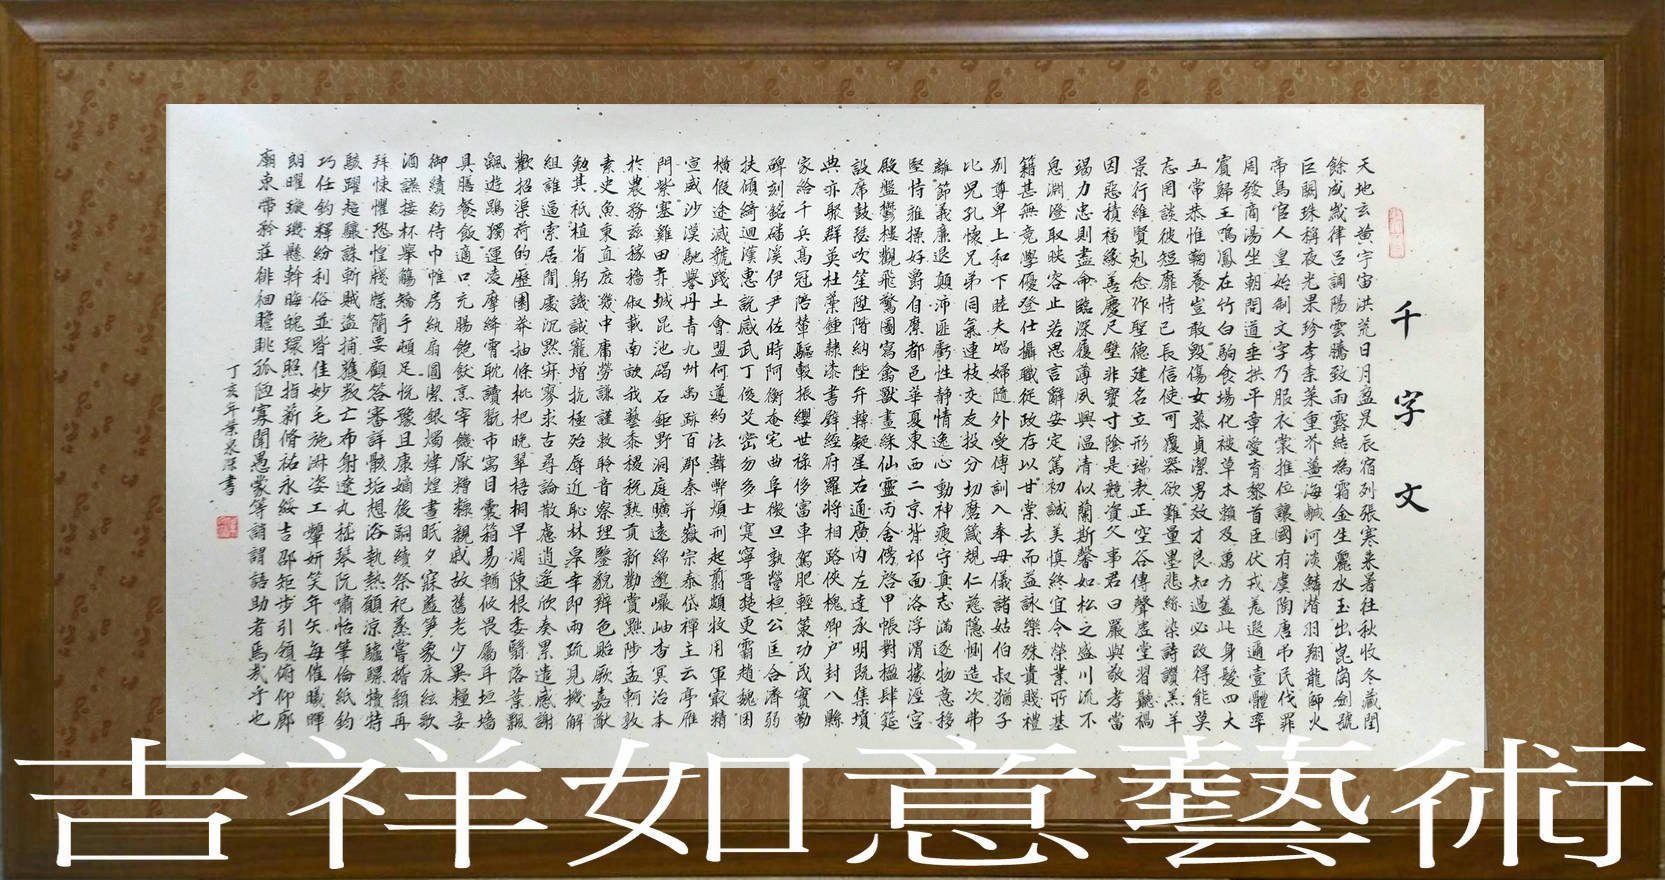 千字文
天地玄黃宇宙洪荒日月盈昃辰宿列張寒來暑往秋收冬藏閏
餘成歲律呂調陽雲騰致雨露結為霜金生麗水玉出崑崗劍號
巨闕珠稱夜光果珍李柰菜重芥薑海鹹河淡鱗潛羽翔龍師火
帝鳥官人皇始制文字乃服衣裳推位讓國有虞陶唐弔民伐罪
周發商湯坐朝問道垂拱平章愛育黎首臣伏戎羌遐邇壹體率
賓歸王鳴鳳在竹白駒食場化被草木賴及萬方蓋此身髮四大
五常恭惟鞠養豈敢毀傷女慕貞潔男效才良知過必改得能莫
忘罔談彼短靡恃己長信使可覆器欲難量墨悲絲染詩讚羔羊
景行維賢剋念作聖德建名立形端表正空谷傳聲虛堂習聽禍
因惡積福緣善慶尺璧非寶寸陰是競資父事君曰嚴與敬孝當
竭力忠則盡命臨深履薄夙興溫清似蘭斯馨如松之盛川流不
息淵澄取映容止若思言辭安定篤初誠美慎終宜令榮業所基
籍甚無竟學優登仕攝職從政存以甘棠去而益詠樂殊貴賤禮
別尊卑上和下睦夫唱婦隨外受傅訓入奉母儀諸姑伯叔猶子
比兒孔懷兄弟同氣連枝交友投分切磨箴規仁慈隱惻造次弗
離節義廉退顛沛匪虧性靜情逸心動神疲守真志滿逐物意移
堅持雅操好爵自縻都邑華夏東西二京背邙面洛浮渭據涇宮
殿盤鬱樓觀飛驚圖寫禽獸畫綵仙靈丙舍傍啓甲帳對楹肆筵
設席鼓瑟吹笙陞階納陛弁轉疑星右通廣內左達承明既集墳
典亦聚群英杜藁鍾隸漆書壁經府羅將相路俠槐卿户封八縣
家給千兵高冠陪輦驅轂振纓世祿侈富車駕肥輕策功茂實勒
碑刻銘磻溪伊尹佐時阿衡奄宅曲阜微旦孰營桓公匡合濟弱
扶傾綺迴漢惠說感武丁俊乂密勿多士寔寧晉楚更霸趙魏困
橫假途滅虢踐土會盟何遵約法韓弊煩刑起翦頗牧用軍最精
宣威沙漠馳譽丹青九州禹跡百郡秦并嶽宗泰岱禪主云亭雁
門紫塞雞田赤城昆池碣石鉅野洞庭曠遠綿邈巖岫杳冥治本
於農務茲稼穡俶載南畝我藝黍稷稅熟貢新勸賞黜陟孟軻敦
素史魚秉直庶幾中庸勞謙謹敕聆音察理鑒貌辨色貽厥嘉猷
勉其祗植省躬譏誡寵增抗極殆辱近恥林皋幸即兩疏見機解
組誰逼索居閒處沉默寂寥求古尋論散慮逍遙欣奏累遣感謝
歡招渠荷的歷園莽抽條枇杷晚翠梧桐早凋陳根委翳落葉飄
颻遊鵾獨運凌摩絳霄耽讀翫市寓目囊箱易輶攸畏屬耳垣牆
具膳餐飯適口充腸飽飫烹宰饑厭糟糠親戚故舊老少異糧妾
御績紡侍巾帷房紈扇圓潔銀燭煒煌晝眠夕寐藍笋象床絃歌
酒讌接杯舉觴矯手頓足悅豫且康嫡後嗣續祭祀蒸嘗稽顙再
拜悚懼恐惶牋牒簡要顧答審詳骸垢想浴執熱願涼驢騾犢特
駭躍超驤誅斬賊盜捕獲叛亡布射遼丸嵇琴阮嘯恬筆倫紙鈞
巧任釣釋紛利俗並皆佳妙毛施淑姿工顰妍笑年矢每催曦暉
朗曜璇璣懸斡晦魄環照指薪脩祜永綏吉邵矩步引領俯仰廊
廟束帶矜莊徘徊瞻眺孤陋寡聞愚蒙等誚謂語助者焉哉乎也
丁亥年葉泉書
吉祥如意藝術